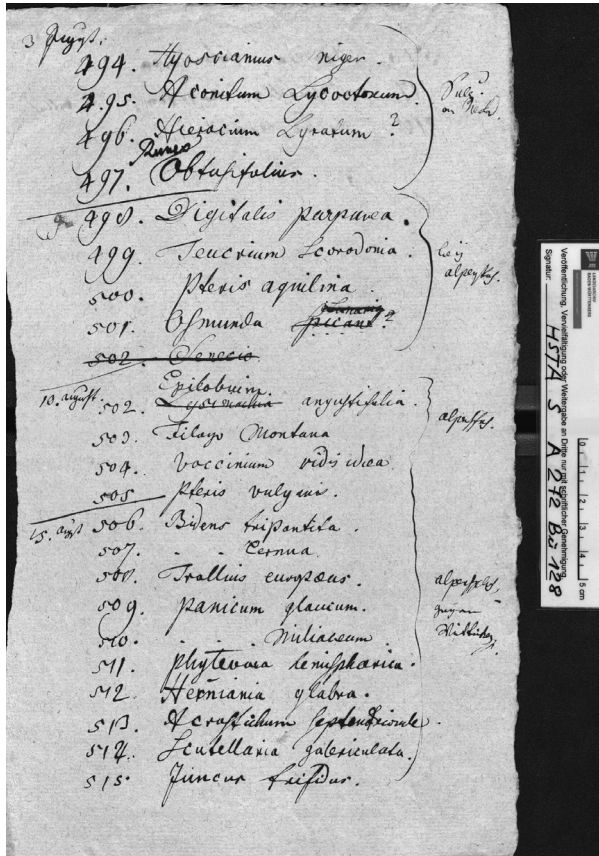 3 August.
494. Hyoscianus niger.
495. Aconitum Lycoctonum.
Sulz
am Neckr.
496. Hieracium Lyratum ?
Rumex
497. Obtusifolius.
9
498. Digitalis purpurea.
499. Teucrium Scorodonia.
bey
alpersp.
500. Pteris aquilina.
501. Osmunda spicant ?
502. Senecio.
Epilobium.
10. august. 502. Lysimachia angustifolia.
503. Filago Montana
504. Vaccinium vidis idaea
505. Pteris vulgaris.
15. augst 506. Bidens tripartita.
507. - - Cernua.
508. Trallius europæus.
509. Panicum glaucum.
510. - - Miliaceum.
511. Phyteuma hemisphærica.
512. Herniaria glabra.
513. Acrostichum septentrionale.
514. Scutellaria galericulata.
515. Juncus trifidus.
LANDESARCHIV
BADEN-WÜRTTEMBERG
Veröffentlichung, Vervielfältigung oder Weitergabe an Dritte nur mit schriftlicher Genehmigung.
Signatur:
HSTA S A 272 Bü 128
0 1 2 3 4 5 cm